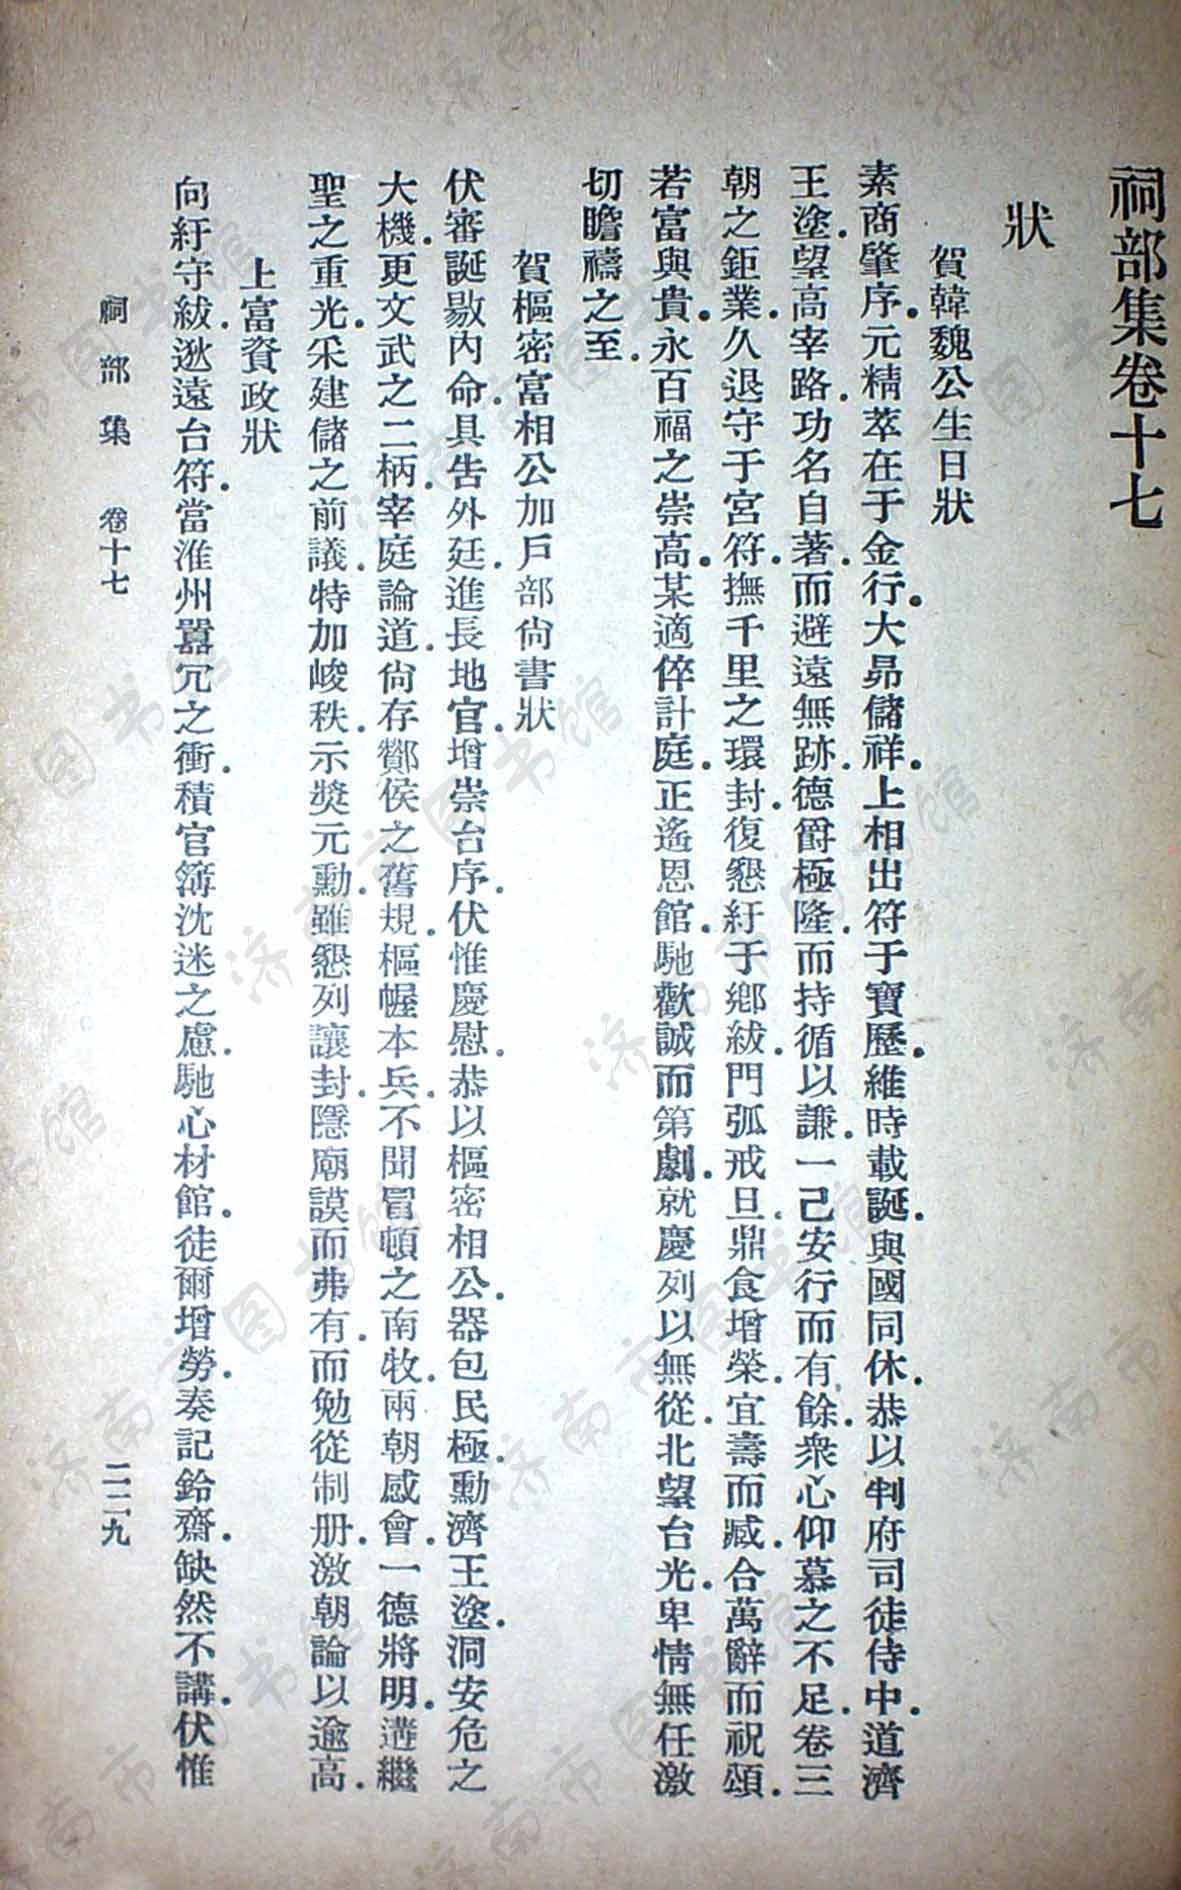 祠部集卷十七
狀
賀韓魏公生日狀
素商肇序。元精萃在于金行。大昴儲祥。上相出符于寶歷。維時載誕。與國同休。恭以判府司徒侍中。道濟
王塗。望高宰路。功名自著。而避遠無跡。德爵極隆。而持循以謙。一己安行而有餘。衆心仰慕之不足。卷三
朝之鉅業。久退守于宮符。撫千里之環封。復懇紆于鄉紱。門弧戒旦。鼎食增榮。宜壽而臧。合萬辭而祝頌。
若富與貴。永百福之崇高。某適倅計庭。正遙恩館。馳歡誠而第劇。就慶列以無從。北望台光。卑情無任激
切瞻禱之至。
賀樞密富相公加戶部尙書狀
伏審誕敭內命。具吿外廷。進長地官。增崇台序。伏惟慶慰。恭以樞密相公。器包民極。勳濟王塗。洞安危之
大機。更文武之二柄。宰庭論道。尙存酇侯之舊規。樞幄本兵。不聞冒頓之南牧。兩朝感會。一德將明。遘繼
聖之重光。采建儲之前議。特加峻秩。示奬元勳。雖懇列讓封。隱廟謨而弗有。而勉從制册。激朝論以逾高。
上富資政狀
向紆守紱。逖遠台符。當淮州囂冗之衝。積官簿沈迷之慮。馳心材館。徒爾增勞。奏記鈴齋。缺然不講。伏惟
祠部集 卷十七 二二九
济南市图书馆